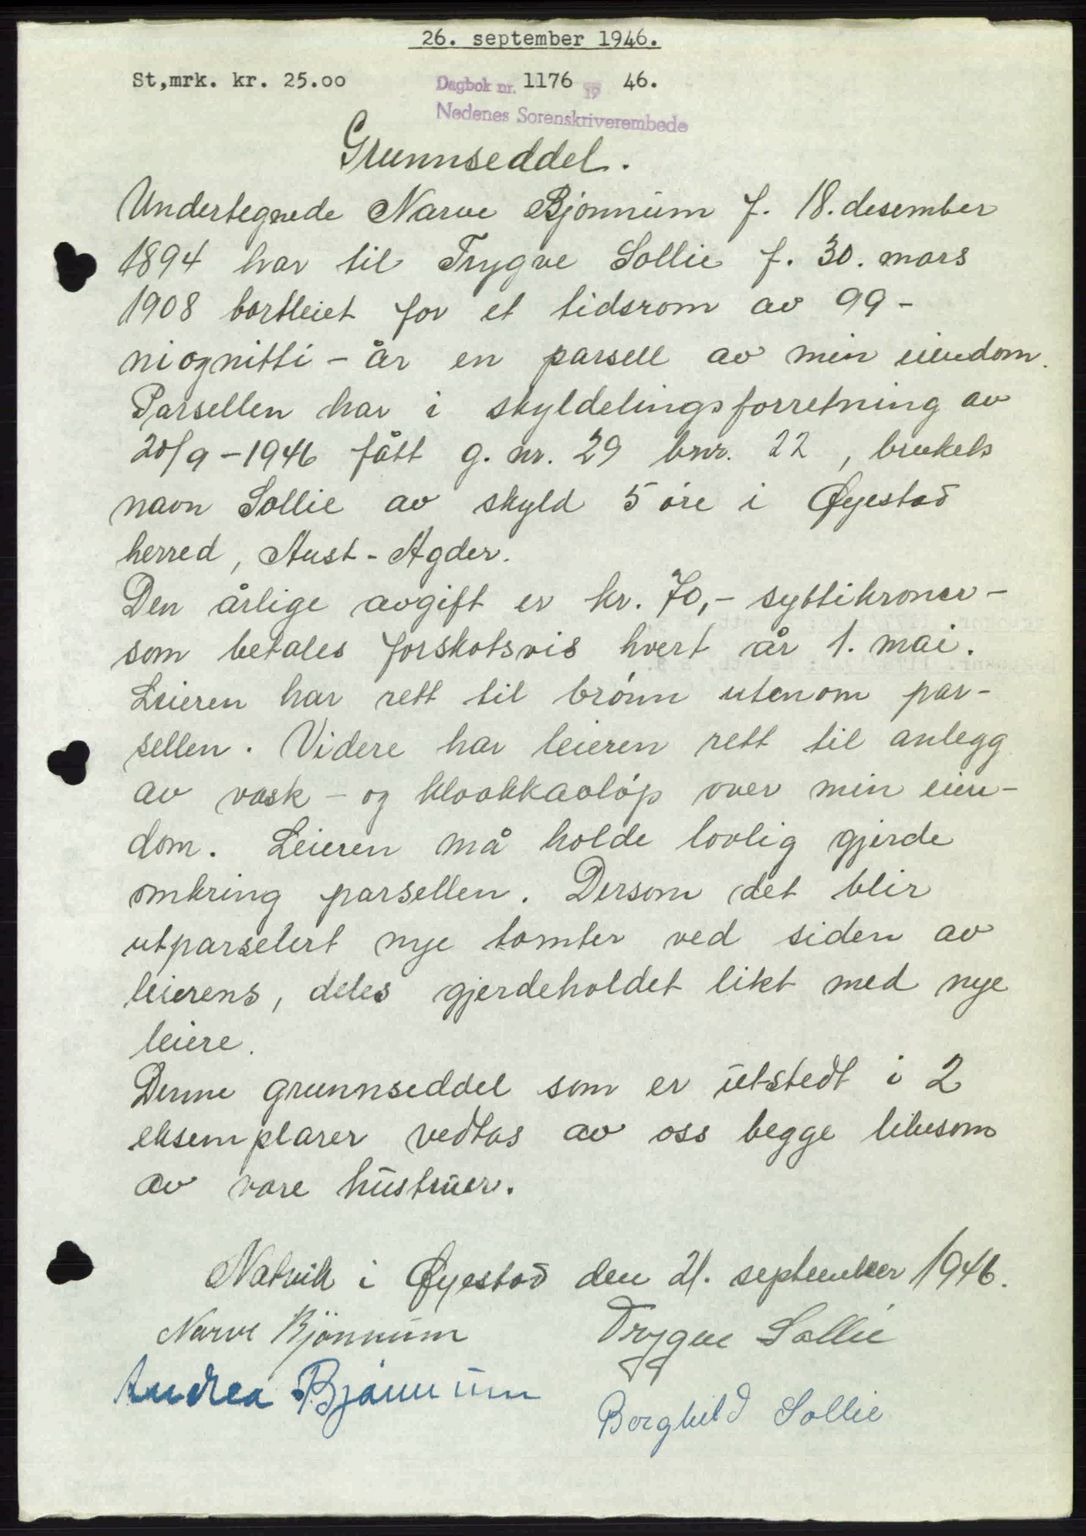 26. september 1946.
St,mrk. kr. 25.00 Dagbok nr. 1176 19 46.
Nedenes Sorenskriverembede
Grunnseddel.
Undertegnede Narve Bjønnum f. 18. desember
1894 har til Trygve Sollie f. 30. mars
1908 bortleiet for et tidsrom av 99 -
niognitti - år en parsell av min eiendom.
Parsellen har i skyldelingsforretning av
20/9 - 1946 fått g. nr. 29 bnr. 22, brukets
navn Sollie av skyld 5 øre i Øyestad
herred, Aust-Agder.
Den årlige avgift er kr. 70,- syttikroner -
som betales forskotsvis hvert år 1. mai.
Leieren har rett til brønn utenom par-
sellen. Videre har leieren rett til anlegg
av vask - og kloakkavløp over min eien-
dom. Leieren må holde lovlig gjerde
omkring parsellen. Dersom det blir
utparselert nye tomter ved siden av
leierens, deles gjerdeholdet likt med nye
leiere.
Denne grunnseddel som er utstedt i 2
eksemplarer vedtas av oss begge likesom
av vare hustruer.
Natvik i Øyestad den 21. september 1946.
Narve Bjönnum Trygve Sollie
Andrea Bjönnum
Borghild Sollie